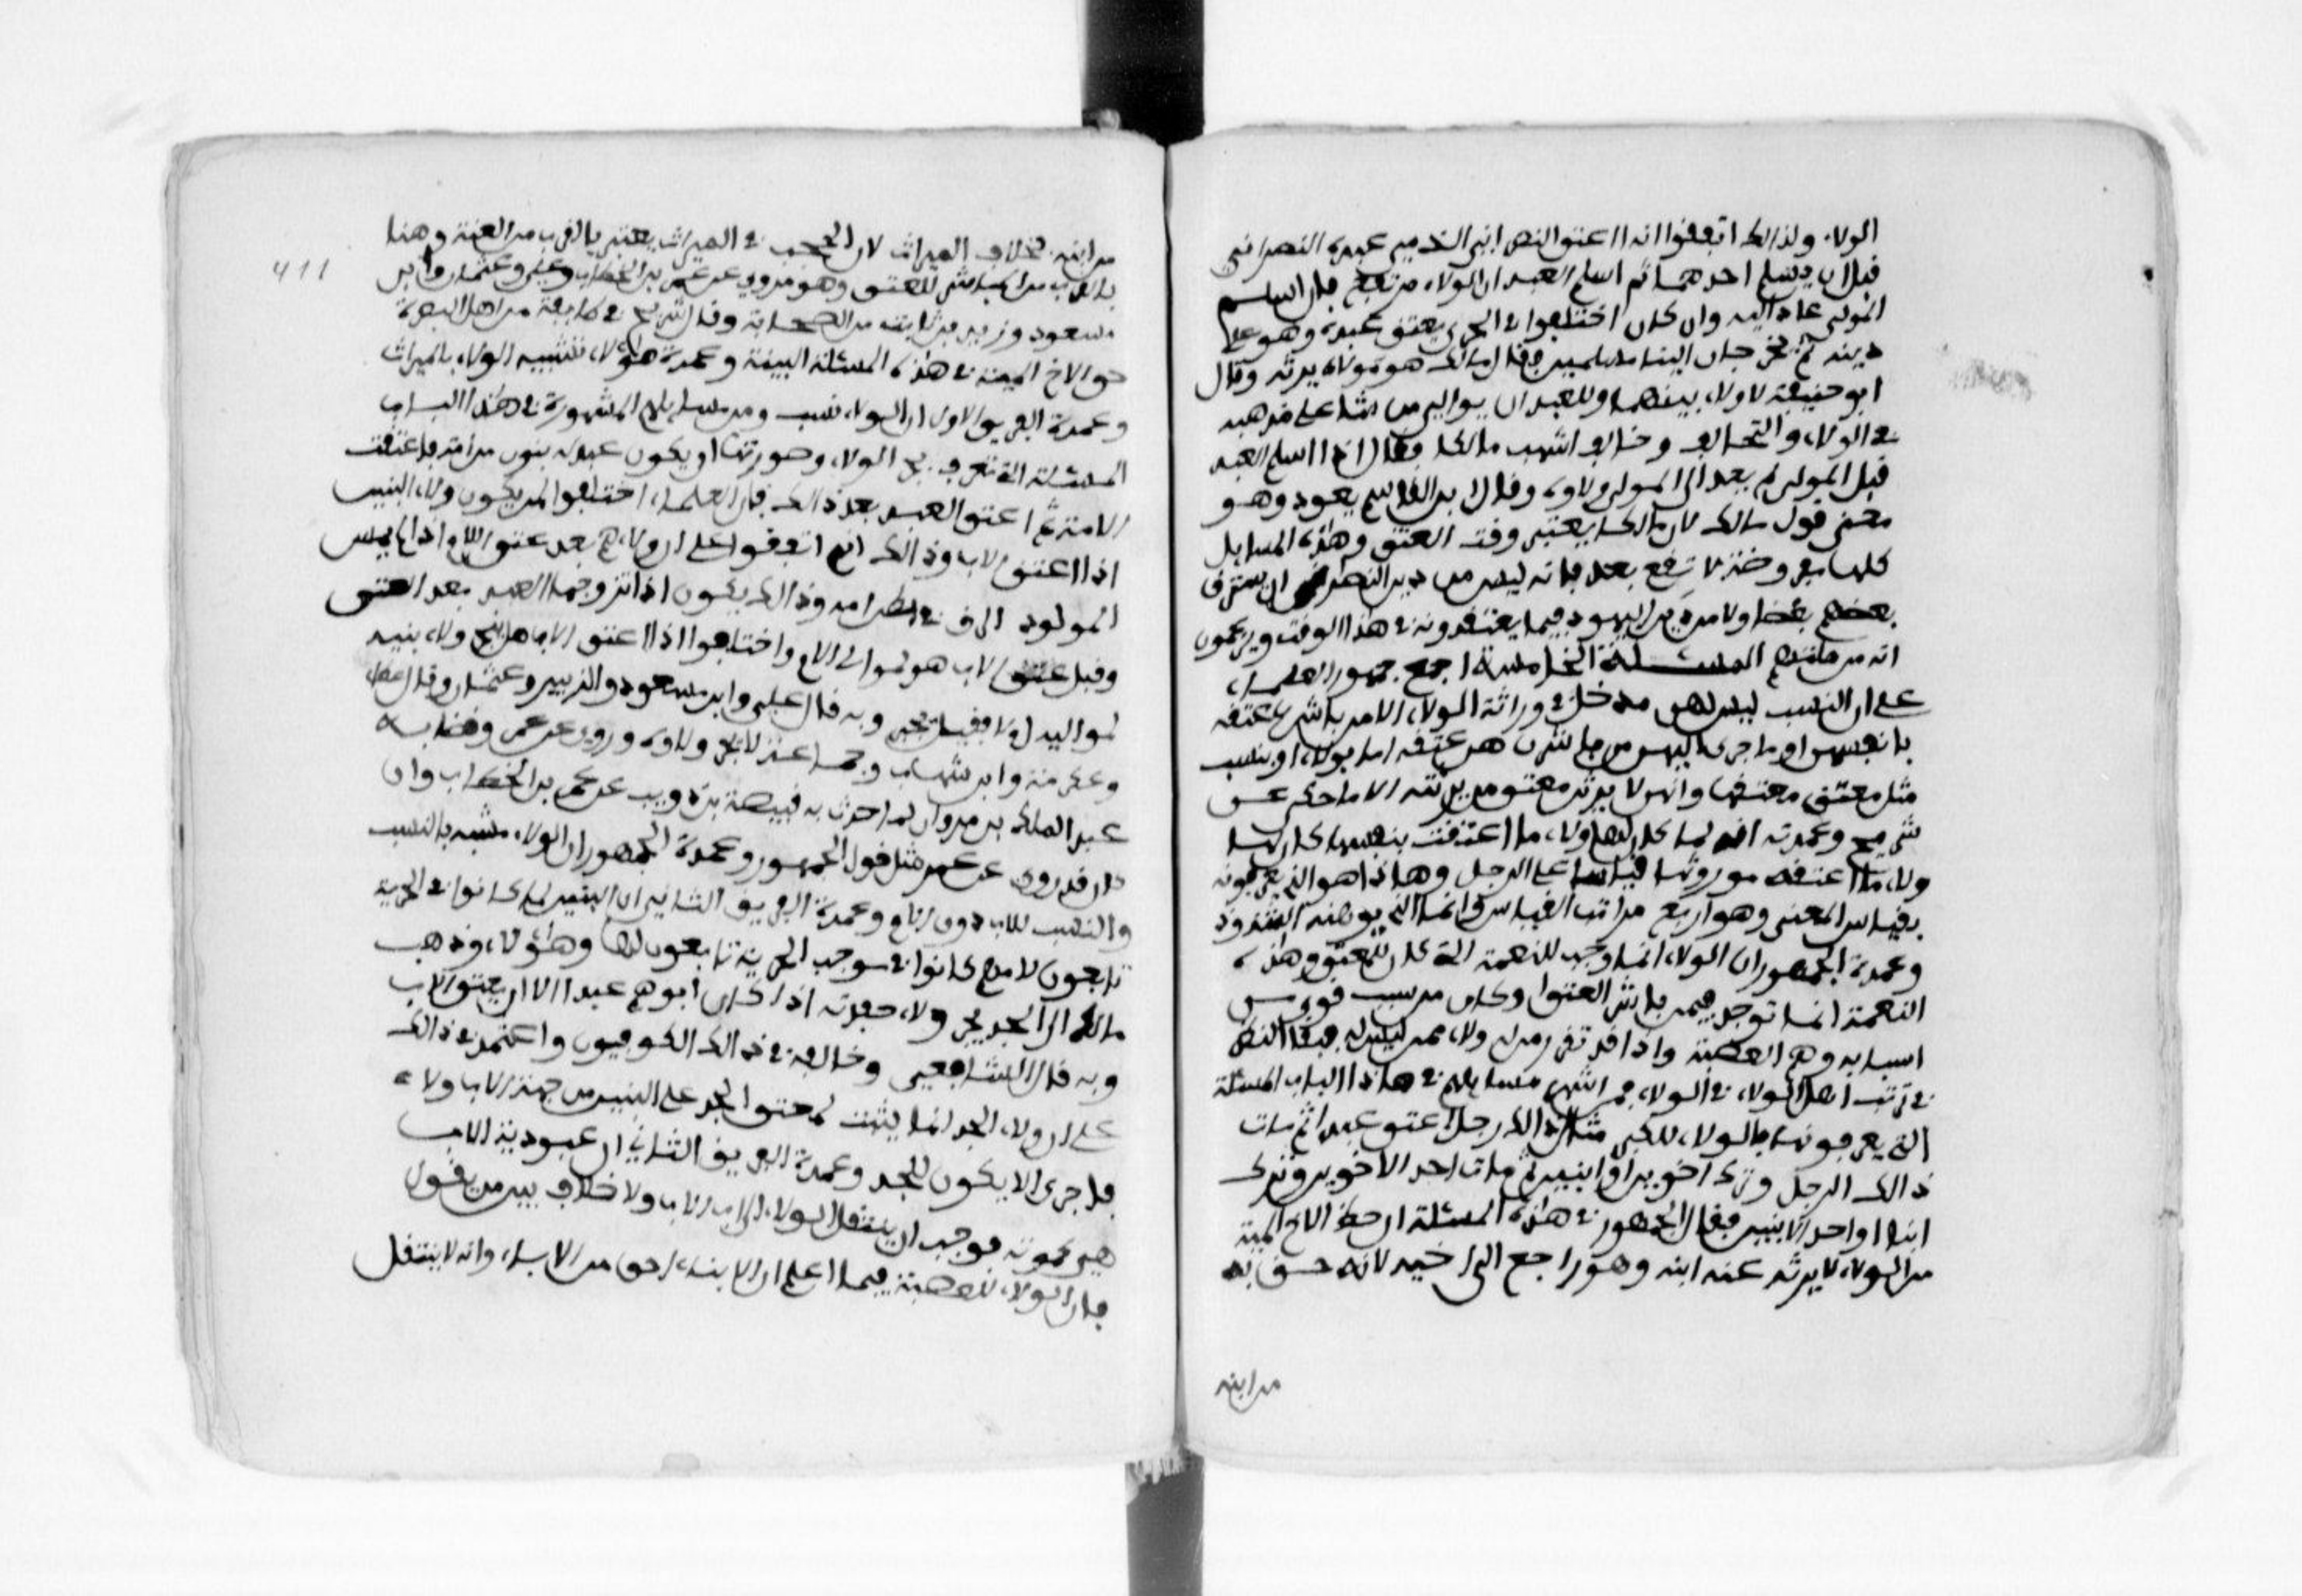 الولاء ولذالك اتفقوا انه اذا اعتق النصراني الذمي عبده النصراني
قبل ان يسلم احدهما ثم اسلم العبد ان الولاء مرتفع فان اسلم
المولى عاد اليه وان كان اختلفوا في الحربي يعتق عبده وهو على
دينه ثم يخرجان الينا مسلمين فقال مالك هو مولاه يرثه وقال
ابو حنيفة لا ولاء بينهما وللعبد ان يوالي من شاء على مذهبه
في الولاء والتحالف وخالف اشهب مالكا فقال اذا اسلم العبد
قبل المولى لم يعد الى المولى ولاؤه وقال ابن القاسم يعود وهو
معنى قول مالك لان مالكا يعتبر وقت العتق وهذه المسايل
كلها مفروضة لا تقع بعد فانه ليس من دين النصارى ان يسترق
بعضهم بعضا ولا من دين اليهود فيما يعتقدونه في هذا الوقت ويزعمون
انه من مللهم المسئلة الخامسة اجمع جمهور العلماء
على ان النساء ليس لهن مدخل في وراثة الولاء الا من باشر عتقه
بانفسهن او ما جر اليهن من باشرن هن عتقه اما بولاء او بنسب
مثل معتق معتقها وانهن لا يرثن معتق من يرثنه الا ما حكي عن
شريح وعمدته انه لما كان لها ولاء ما اعتقت بنفسها كان لها
ولاء ما اعتقه موروثها قياسا على الرجل وهاذا هو الذي يعرفونه
بقياس المعنى وهو ارفع مراتب القياس وانما الذي يوهنه الشذوذ
وعمدة الجمهور ان الولاء انما وجب للنعمة التي كان للمعتق وهذه
النعمة انما توجد فيمن باشر العتق او كان من سبب قوي من
اسبابه وهم العصبة واذا قد تقرر من له ولاء ممن ليس له فبقي النظر
في ترتيب اهل الولاء في الولاء فمن اشهر مسايلهم في هاذا الباب المسئلة
التي يعرفونها بالولاء للكبر مثال ذالك رجل اعتق عبدا ثم مات
ذالك الرجل وترك اخوين او ابنين ثم مات احد الاخوين وترك
ابنا او احد الابنين فقال الجمهور في هذه المسئلة ان حظ الاخ الميت
من الولاء لا يرثه عنه ابنه وهو راجع الى اخيه لانه احق به
من ابنه
411
من ابنه بخلاف الميراث لان الحجب في الميراث يعتبر بالقرب من الميت وهنا
بالقرب من المباشر للعتق وهو مروي عن عمر بن الخطاب وعلي وعثمان وابن
مسعود وزيد بن ثابت من الصحابة وقال شريح في طايفة من اهل البصرة
حق الاخ الميت في هذه المسئلة لبنيه وعمدة هؤلاء تشبيه الولاء بالميراث
وعمدة الفريق الاول ان الولاء نسب ومن مسايلهم المشهورة في هذا الباب
المسئلة التي تعرف بجر الولاء وصورتها ان يكون عبد له بنون من امة فاعتقت
الامة ثم اعتق العبد بعد ذالك فان العلماء اختلفوا لمن يكون ولاء البنين
اذا اعتق الاب وذالك انهم اتفقوا على ان ولاءهم بعد عتق الام اذا لم يمس
المولود الرق في بطن امه وذالك يكون اذا تزوجها العبد بعد العتق
وقبل عتق الاب هو لموالي الام واختلفوا اذا اعتق الاب هل يجر ولاء بنيه
لمواليه ام لا فقيل يجر وبه قال علي وابن مسعود والزبير وعثمان وقال عطاء
وعكرمة وابن شهاب وجماعة لا يجر ولاؤه وروي عن عمر وقضا به
عبد الملك بن مروان لما حدث به قبيصة بن ذويب عن عمر بن الخطاب وان
كان قد روي عن عمر مثل قول الجمهور وعمدة الجمهور ان الولاء مشبه بالنسب
والنسب للاب دون الام وعمدة الفريق الثاني ان البنين لما كانوا في الحرية
تابعين لامهم كانوا في موجب الحرية تابعون لها وهو الولاء وذهب
مالك الى ان الجد يجر ولاء حفدته اذا كان ابوهم عبدا الا ان يعتق الاب
وبه قال الشافعي وخالفه في ذالك الكوفيون واعتمدوا في ذالك
على ان ولاء الجد انما يثبت لمعتق الجد على البنين من جهة الاب ولاء
فاحرى الا يكون للجد وعمدة الفريق الثاني ان عبودية الاب
هي كموته فوجب ان ينتقل الولاء الى اب الاب ولا خلاف بين من يقول
بان الولاء للعصبة فيما اعلم ان الابناء احق من الاباء وانه لا ينتقل